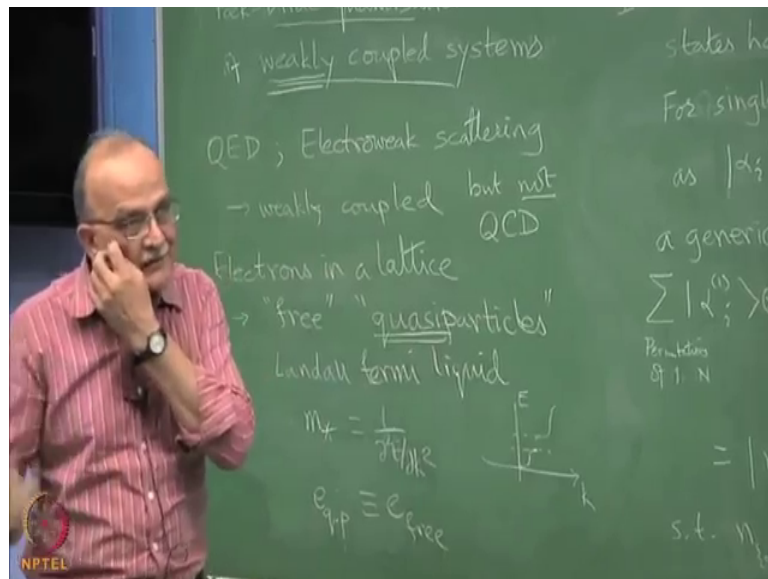 of weakly coupled systems
QED ; Electroweak scattering
→ weakly coupled but not
QCD
Electrons in a lattice
→ "free" "quasiparticles"
Landau fermi liquid
m* ≡ 1/∂²E/∂k²
E
k
e q.p ≡ e free
states ha
For singl
as |α i
a generic
∑ |α i (1) >
Permutations
of 1. N
= |
s.t. n
NPTEL